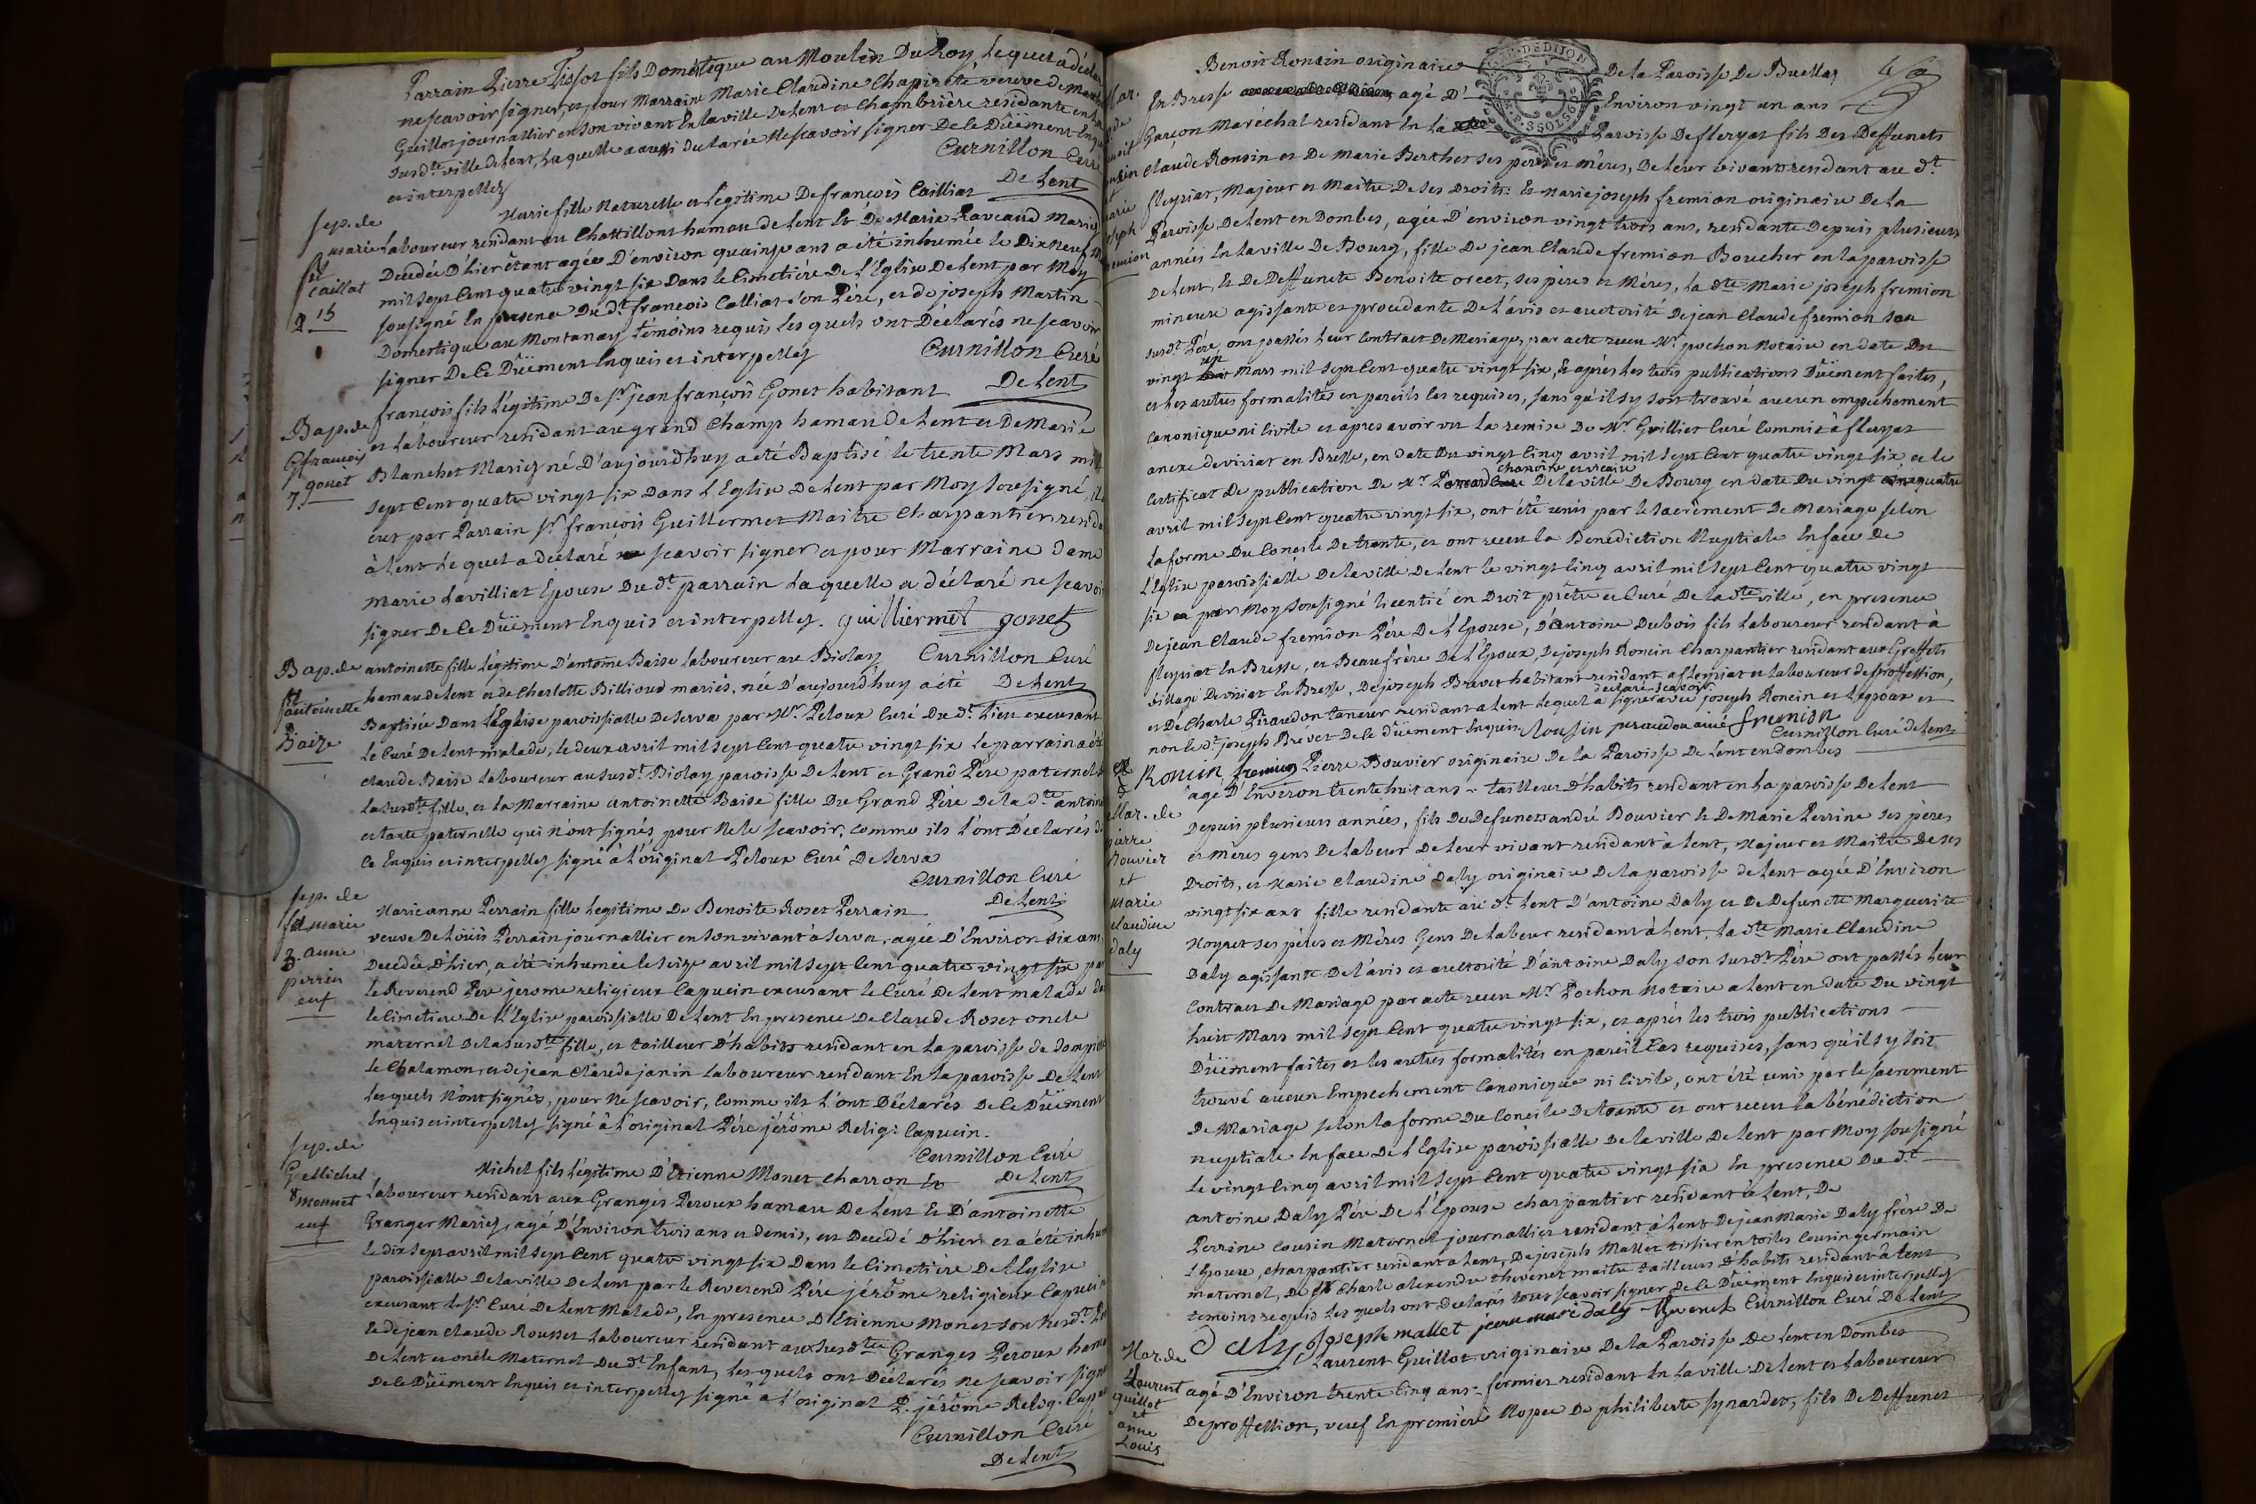 Parrain Pierre Tissot fils Doméstique au Moulin Du Roy, lequel a déclaré
ne scavoir signer, et pour Marraine Marie Claudine Chapiroté veuve de
Guillot journallier en son vivant En la ville De Lent et Chambrière residante en la
susdte ville de Lent, Laquelle a aussi declarée Ne scavoir signer De Ce Düement Enquis
et interpellez
Curnillon Curé
De Lent
Sep. de
marie
caillat
15
Marie fille Naturelle et Legitime De francois Cailliat
Laboureur residant au Chattillont hamau de Lent Et De Marie Raveaud Mariés
Decedée D'hier êtant agée D'environ quainze ans a été inhumée le Dix neuf
mil sept Cent quatre vingt six Dans le Cimetière De L'Eglise De Lent par Moy
sousigné En presence Du dt francois Calliat son Pére, et de joseph Martin
Domestique au Montanay témoins requis les quels ont Déclarés ne scavoir
signer De Ce Düement Enquis et interpellez
Curnillon Curé
De Lent
Bap. de
francois
gonet
7.
francois fils Légitime De Sr jean françois Gonet habitant
et Laboureur residant au grand Champ hamau de Lent et De Marie
Blanchet Mariez né D'aujourdhuy a eté Baptisé le trente Mars mil
sept Cent quatre vingt six Dans L'Eglise De Lent par Moy sousigné, Il a
eut par Parrain Sr francois Guillermet Maitre Charpantier residant
à Lent Le quel a declaré scavoir signer et pour Marraine dame
Marie Lavilliat Epouse Du dt parrain La quelle a déclaré ne scavoir
signer De Ce Düement Enquis et interpellez. guilliermet gonet
Curnillon Curé
De Lent
Bap. de
antoinette
Baize
antoinette fille Légitime D'antoine Baise Laboureur au Biolay
hamau de Lent et de Charlotte Billioud mariés, née D'aujourdhuy a été
Baptisée Dans L'Eglise paroissialle De Serva par Mr Peloux Curé Du dt Lieu excusant
Le Curé De Lent malade, le deux avril mil sept Cent quatre vingt six Le parrain a été
claude Baise Laboureur au susdt Biolay paroisse De Lent et Grand Pére paternel de
la susdte fille, et la Marraine Antoinette Baise fille Du Grand Pére De la dte antoinette
et tante paternelle qui n'ont signés pour Ne le scavoir, comme ils l'ont Déclarés de
Ce Enquis et interpellez signé à l'original Peloux Curé De Serva
Curnillon Curé
De Lent
Sep. de
marie
3. anne
perrin
enf
Marie anne Perrain fille Legitime De Benoite Roset Perrain
veuve De Loüis Perrain journallier en son vivant à Serva, agée D'Environ six ans
Decedée D'hier, a été inhumée le seize avril mil sept Cent quatre vingt six par
le Reverend Pére jerome religieux Capucin excusant le Curé De Lent malade dans
le Cimetiere De L'Eglise paroissialle De Lent En presence De Claude Roset oncle
maternel De la susdte fille, et tailleur D'habits residant en La paroisse de dompierre
le Chalamon et de jean Claude janin Laboureur residant En La paroisse De Lent
Lesquels N'ont signés, pour Ne scavoir, Comme ils L'ont Déclarés De Ce Düement
Enquis et interpellez signé â l'original Pére jérôme Relig. Capucin.
Curnillon Curé
De Lent
Sep. de
Michel
monnet
enf
Michel fils Légitime D'Etienne Monet Charron Et
Laboureur residant aux Granges Peroux hamau De Lent Et D'antoinette
Granger Mariez, agé D'Environ trois ans et demis, est Decedé d'hier et a été inhumé
Le dix sept avril mil sept Cent quatre vingt six Dans le Cimetière De L'Eglise
paroissialle De la ville De Lent par le Reverend Pére jérôme religieux Capucin
excusant Le Sr Curé De Lent Malade, En presence D'Etienne Monet son susdt Pére
Et de jean Claude Rousset Laboureur residant aux susdtes Granges Peroux hamau
De Lent et oncle Maternel Du dt Enfant, Les quels ont Declarés Ne scavoir signer
De Ce Düement Enquis et interpellez signé a l'original P. jérôme Relig. Capucin
Curnillon Curé
De Lent
Benoit Ronsin originaire De la Paroisse De Buellas
En Bresse agé D' Environ vingt un ans
Garçon Maréchal residant En La Paroisse De fleryat fils Des Deffunets
Claude Ronsin et De Marie Berthet ses peres et mères, De Leur vivant residant au dt
fleyriat, Majeur et Maitre De ses Droits Et Marie joseph fremion originaire De La
Paroisse De Lent en Dombes, agée D'environ vingt trois ans, residante Depuis plusieurs
années En La ville De Bourg, fille De jean Claude fremion Boucher en la paroisse
De Lent Et De Deffunete Benoite orcet, ses pères et Mères, La dte Marie joseph fremion
mineure agissante et procedante De L'avis et auctorité De jean Claude fremion son
susdt Pére ont passés Leur Contract De Mariage, par acte reçu Mr pochon Notaire en date Du
vingt sept Mars mil sept Cent quatre vingt six, Et après Les trois publications Düement faites,
et Les autres formalités en pareils Cas requises, sans qu'il s'y soit trouvé aucun empechement
Canonique ni Civile et apres avoir vu La remise De Mr Guillier Curé Commis â fleryat
anexe de viriat en Bresse, en date Du vingt Cinq avril mil sept Cent quatre vingt six et le
Certificat De publication De Mr chanoine et vicaire De la ville De Bourg en date Du vingt quatre
avril mil sept Cent quatre vingt six, ont été unis par le sacrement De Mariage selon
La forme Du Concile De trente, et ont recu La Benediction Nuptiale En face De
L'Eglise paroissialle De la ville De Lent Le vingt Cinq avril mil sept Cent quatre vingt
six par Moy sousigné licentié en Droit prêtre et Curé De la dte ville, en presence
De jean Claude fremion Pére De L'Epouse, D'antoine Dubois fils Laboureur residant à
fleyriat En Bresse, et Beaufrère De L'Epoux, De joseph Roncin Charpantier residant aux Greffets
village De viriat En Bresse, De joseph Brevet habitant residant a fleyriat et Laboureur de proffession,
et De Charle Piraudon taneur residant a Lent Lequel a declaré scavoir signer avec joseph Roncin et L'epoux et
non le dt joseph Brevet De Ce düement Enquis Ronsin peraudon ainé fremion
Curnillon Curé de Lent
Roncin fremion
Mar. de
pierre
Bouvier
et
Marie
claudine
daly
Pierre Bouvier originaire De La Paroisse De Lent en Dombes
agé D'Environ trente huit ans - tailleur D'habits residant en La paroisse De Lent
Depuis plusieurs années, fils De Defunets andré Bouvier Et De Marie Perrine ses pères
et Meres gens De Labeur De Leur vivant residant à Lent, Majeur et Maitre De ses
Droits, et Marie Claudine Daly originaire De La paroisse de Lent agée D'Environ
vingt six ans fille residante au dt Lent D'antoine Daly et De Defuncte Marguerite
Noyret ses pères et Mères Gens De Labeur residant à Lent, La dte Marie Claudine
Daly agissante De L'avis et auctorité D'antoine Daly son susdt Pére ont passés Leur
Contract De Mariage par acte recu Mr Pochon Notaire a Lent en date Du vingt
huit Mars mil sept Cent quatre vingt six, et après les trois publications
Düement faites et les autres formalités en pareil Cas requises, sans qu'il s'y soit
trouvé aucun Empechement Canonique ni Civile, ont été unis par le sacrement
De Mariage selon la forme Du Concile De trente et ont recu la bénédiction
nuptiale En face De L'Eglise paroissialle De la ville De Lent par Moy sousigné
Le vingt Cinq avril mil sept Cent quatre vingt six En presence Du dt
antoine Daly Pére De L'Epouse charpantier residant à Lent, De
Perrine Cousin Maternel journallier residant à Lent De jean Marie Daly frère De
L'Epouse, charpantier residant a Lent, De joseph Mallet tissier en toiles Cousin germain
maternel, De Charle alexendre thevenet maitre tailleur D'habits residant à Lent
temoins requis Les quels ont declarés tous scavoir signer De Ce Düement Enquis et interpellez
Daly joseph mallet jean marie daly thevenet Curnillon Curé De Lent
Mar. de
Laurent
guillot
et
anne
Louis
Laurent Guillot originaire De la Paroisse De Lent en Dombes
agé D'Environ trente Cinq ans - fermier residant En La ville De Lent et Laboureur
De proffession, veuf En première Nopce De philiberte synardet, fils De Deffunet